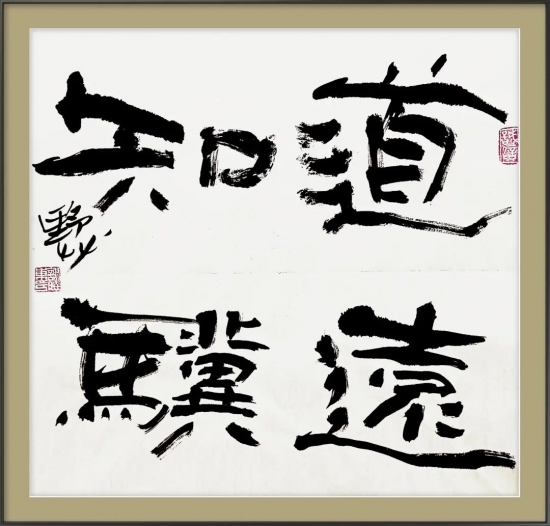 道遠
知驥